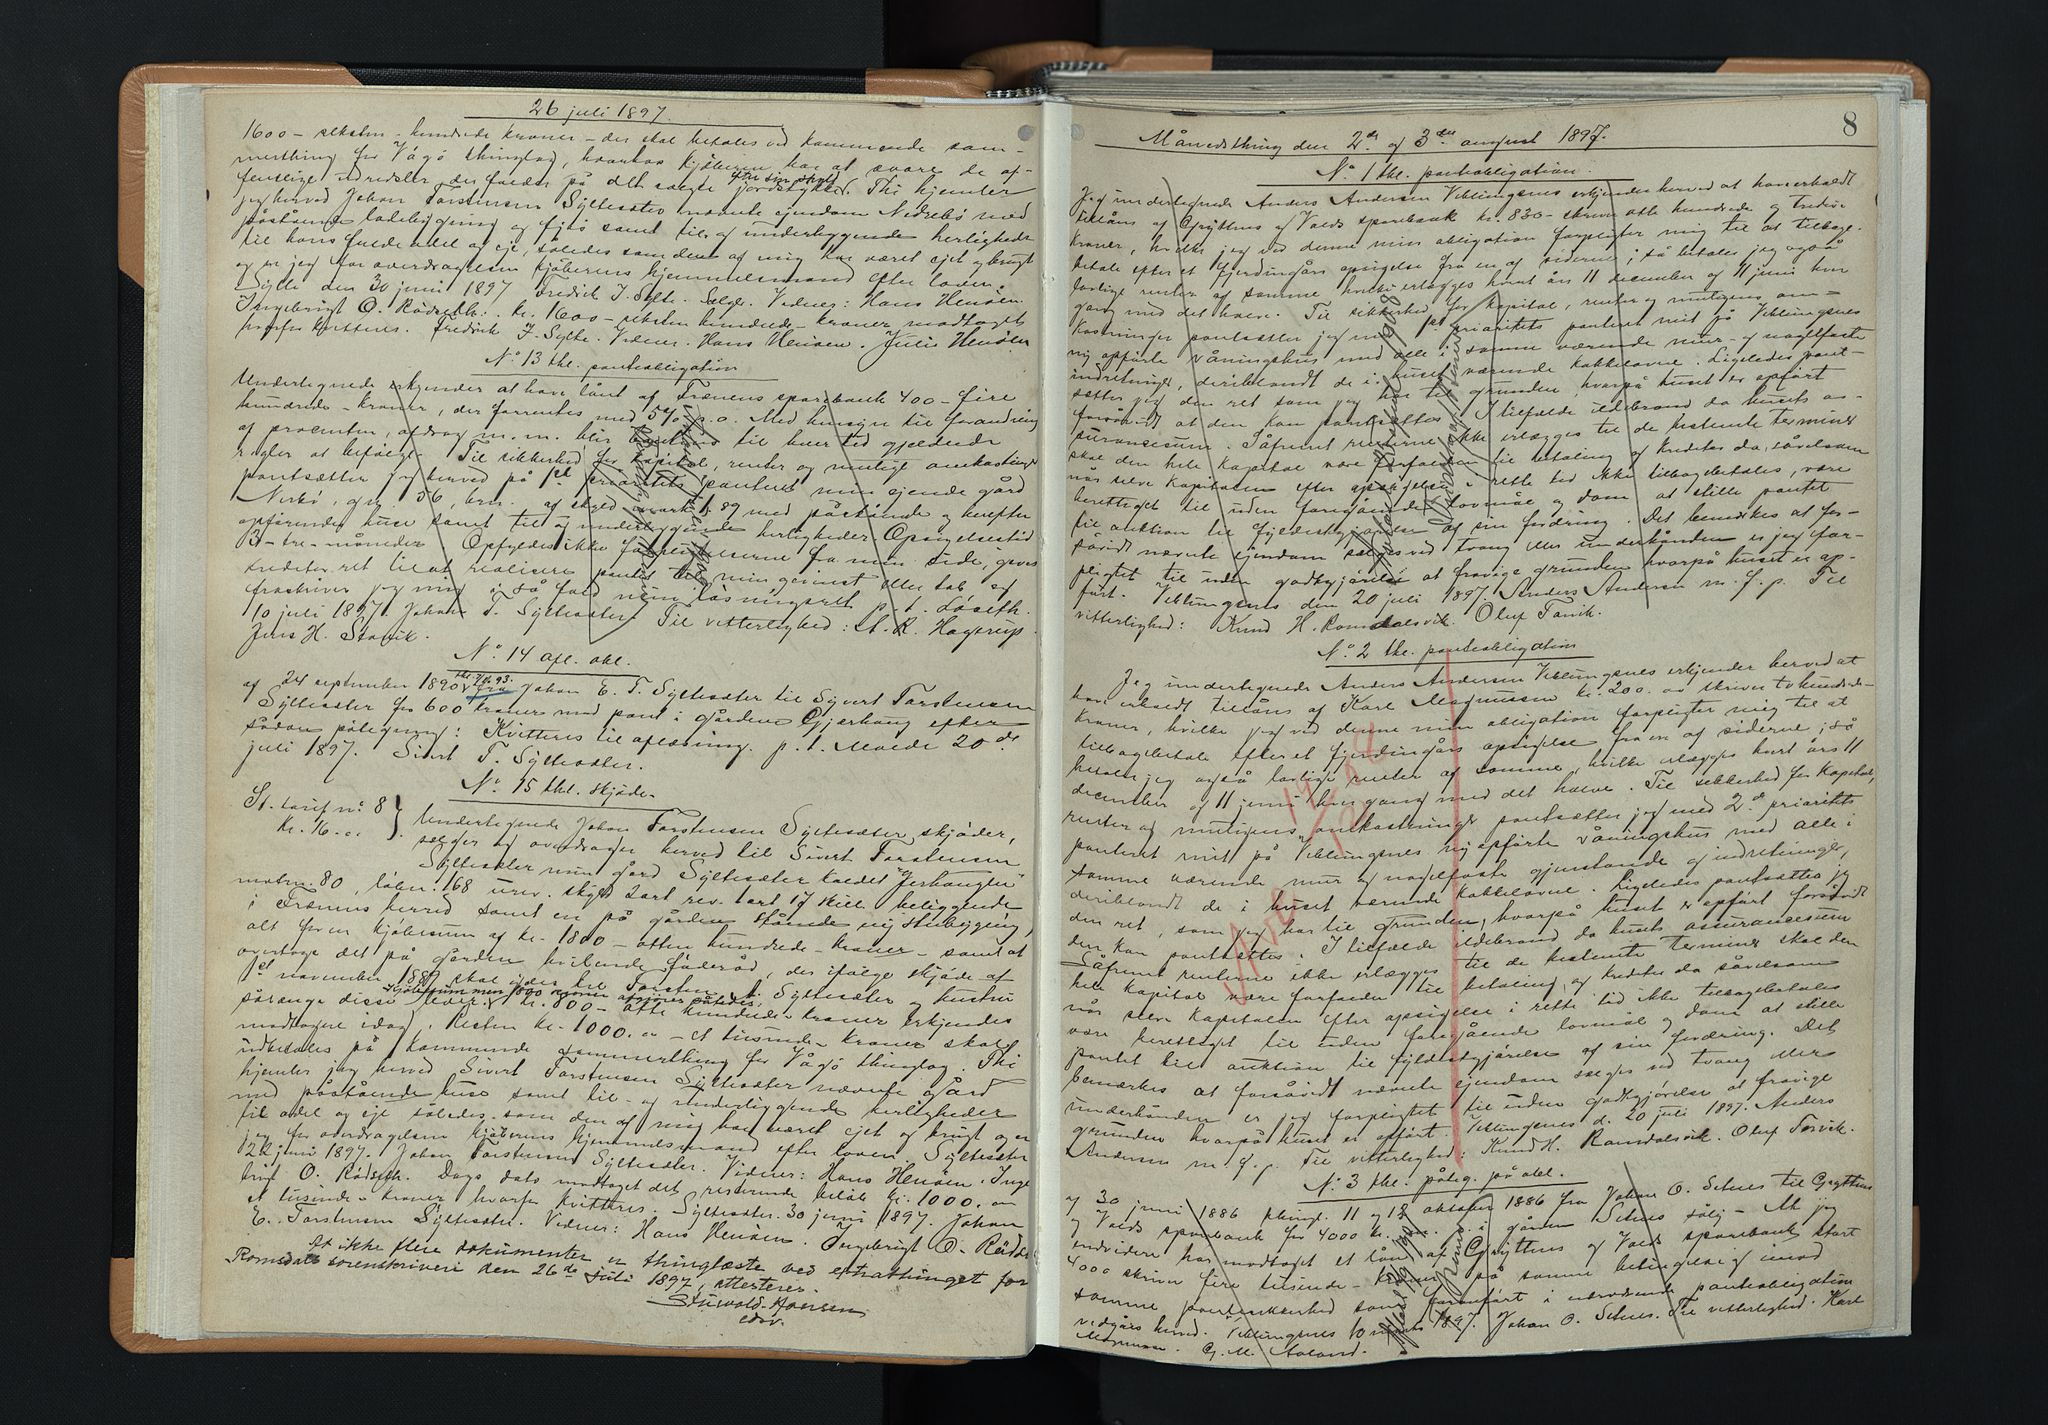 26 juli 1897.
1600 – seksten – hundrede kroner – der skal betales ved kommende som-
merthing for Vågø thinglag, hvorhos kjøberen har at svare de of-
fentlige udredsler der falder på det solgte jordstykke. Thi hjemler
jeg herved Johan Torstensen Syltesæter nævnte ejendom Nedrebø med
påstående ladebygning og fjøs samt til- og underliggende herligheder
til hans fulde odel og eje, således som den af mig har været ejet og brugt
og er jeg for overdragelsen kjøberens hjemmelsmand efter loven.
Sylte den 30 juni 1897 Fredrik I. Sylte. Sælger. Vidner: Hans Henøen.
Ingebrigt O. Rødseth. Kr. 1600 – seksten hundrede – kroner modtaget
hvorfor kvitteres. Fredrik I. Sylte. Vidner: Hans Henøen. Julie Henøen
No. 13 thl. pantobligation
Undertegnede erkjender at have lånt af Frænens sparebank 400 – fire
hundrede – kroner, der forrentes med 5% p.a. Med hensyn til forandring
af procenten, afdrag m.m. blir bankens til hver tid gjældende
regler at befølge. Til sikkerhed for kapital, renter og muligt omkostninger
pantsætter jeg herved på 1ste prioritets panteret min ejende gård
3 – tre – måneder Opfyldes ikke forpligtelserne fra min side, gives
kreditor ret til at realisere pantet til min gevinst eller tab og
fraskriver jeg mig i så fald min løsningsret p. t. Løseth
10 juli 1897. Johan T. Syltesæter. Til vitterlighed: A. K. Hagerup.
Jens H. Stavik.
No. 14 afl. obl.
af 24 september 1890 fra Johan E. T. Syltesæter til Sivert Torstensen
Syltesæter for 600 kroner med pant i gården Gjerhaug efter
sådan påtegning: Kvitteres til aflæsning. p. t. Molde 20de
juli 1897. Sivert T. Syltesæter.
No. 15 thl. skjøde.
St. tarif no. 8
Kr. 16.00
Undertegnede Johan Torstensen Syltesæter skjøder,
sælger og overdrager herved til Sivert Torstensen
Syltesæter min gård Syltesæter kaldet "Jerhaugen"
matrn. 80, løbn. 168 urev. skyld 2 ort rev. 1 ort 17 skill. beliggende
i Frænens herred samt en på gården stående ny stubygning,
alt for en kjøbesum af kr. 1800 – atten hundrede – kroner – samt at
overtage det på gården hvilende føderåd, der ifølge skjøde af
1st november 1889 skal ydes til Torsten T. Syltesæter og hustru
sålænge disse lever. kr. 800 – otte hundrede – kroner erkjendes
modtagne idag. Resten kr. 1000.00 – et tusinde – kroner skal
udbetales på kommende sommerthing for Vågø thinglag. Thi
hjemler jeg herved Sivert Torstensen Syltesæter nævnte gård
med påstående huse samt til- og underliggende herligheder
til odel og eje således som den af mig har været ejet og brugt og er
jeg for overdragelsen kjøberens hjemmelsmand efter loven. Syltesæter
22 juni 1897. Johan Torstensen Syltesæter. Vidner: Hans Henøen. Inge
brigt O. Rødseth. Dags dato modtaget det resterende beløb kr. 1000.00
et tusinde – kroner hvorfor kvitteres. Syltesæter 30 juni 1897. Johan
E. Torstensen Syltesæter. Vidner: Hans Henøen. Ingebrigt O. Rødseth
At ikke flere dokumenter er thinglæste ved extrathinget for
Romsdals sorenskriveri den 26de juli 1897, attesterer
8
Månedsthing den 2den og 3die august 1897.
No. 1 thl. pantobligation.
Jeg undertegnede Anders Andersen Veblungsnes erkjender herved at have erholdt
tillåns af Gryttens og Volds sparebank kr. 830 – skriver otte hundrede og tredive
kroner, hvilke jeg ved denne min obligation forpligter mig til at tilbage-
betale efter et fjerdingårs opsigelse fra en af siderne; så betaler jeg også
lovlige renter af samme hvilke erlægges hvert års 11 december og 11 juni hver
gang med det halve. Til sikkerhed for kapital, renter og muligens om-
kostninger pantsætter jeg med 1st prioritets panteret mit på Veblungsnes
ny opførte våningshus med alle i samme værende mur- og nagelfaste
indretninger, deriblandt de i huset værende kakkelovne. Ligeledes pant-
sætter jeg den ret som jeg har til grunden, hvorpå huset er opført
forsåvidt, at den kan pantsættes. I tilfælde ildebrand da husets as-
surancesum. Såfremt renterne ikke erlægges til de bestemte terminer
skal den hele kapital være forfalden til betaling og kreditor da, såvelsom
når selve kapitalen efter opsigelse i rette tid ikke tilbagebetales, være
berettiget til uden foregående lovmål og dom at stille pantet
til auktion til fyldestgjørelse af sin fordring. Det bemærkes at for-
såvidt nævnte ejendom sælges ved tvang eller underhånden er jeg for-
pligtet til uden godtgjørelse at fravige grunden hvorpå huset er op-
ført. Veblungsnes den 20 juli 1897. Anders Andersen m. f. p. Til
vitterlighed: Knud H. Romsdalsvik. Oluf Torvik.
No. 2 thl. pantobligation
Jeg undertegnede Anders Andersen Veblungsnes erkjender herved at
have erholdt tillåns af Karl Magnussen kr. 200.00 skriver tohundrede
kroner, hvilke jeg ved denne min obligation forpligter mig til at
tilbagebetale efter et fjerdingårs opsigelse fra en af siderne; så
betaler jeg også lovlige renter af samme, hvilke erlægges hvert års 11
december og 11 juni hver gang med det halve. Til sikkerhed for kapital,
renter og muligens omkostninger pantsætter jeg med 2den prioritets
panteret mit på Veblungsnes ny opførte våningshus med alle i
samme værende mur og nagelfaste gjenstande og indretninger,
deriblandt de i huset værende kakkelovne. Ligeledes pantsættes jeg
den ret, som jeg har til grunden, hvorpå huset er opført forsåvidt
den kan pantsættes. I tilfælde ildebrand da husets assurancesum
Såfremt renterne ikke erlægges til de bestemte terminer skal den
hele kapital være forfalden til betaling, og kreditor da såvelsom
når selve kapitalen efter opsigelse i rette tid ikke tilbagebetales
være berettiget til uden foregående lovmål og dom at stille
pantet til auktion til fyldestgjørelse af sin fordring. Det
bemærkes at forsåvidt nævnte ejendom sælges ved tvang eller
underhånden er jeg forpligtet til uden godtgjørelse at fravige
grunden hvorpå huset er opført. Veblungsnes d. 20 juli 1897. Anders
Andersen m. f. p. Til vitterlighed: Knud H. Romsdalsvik. Oluf Torvik.
No. 3 thl. påteg. på obl.
af 30 juni 1886 thingl. 11 og 12 oktober 1886 fra Johan O. Setnes til Gryttens
og Volds sparebank for 4000 kr. m. p. i gården Setnes sålj – At jeg
endvidere har modtaget et lån af Gryttens og Volds sparebank stort
4000 skriver fire tusinde – kroner på samme betingelse og mod
samme pantesikkerhed som foranført i nærværende pantobligation
vedgåes herved. Veblungsnes 10 1897. Johan O. Setnes. Til vitterlighed. Karl
Magnussen. G. M. Aaland.